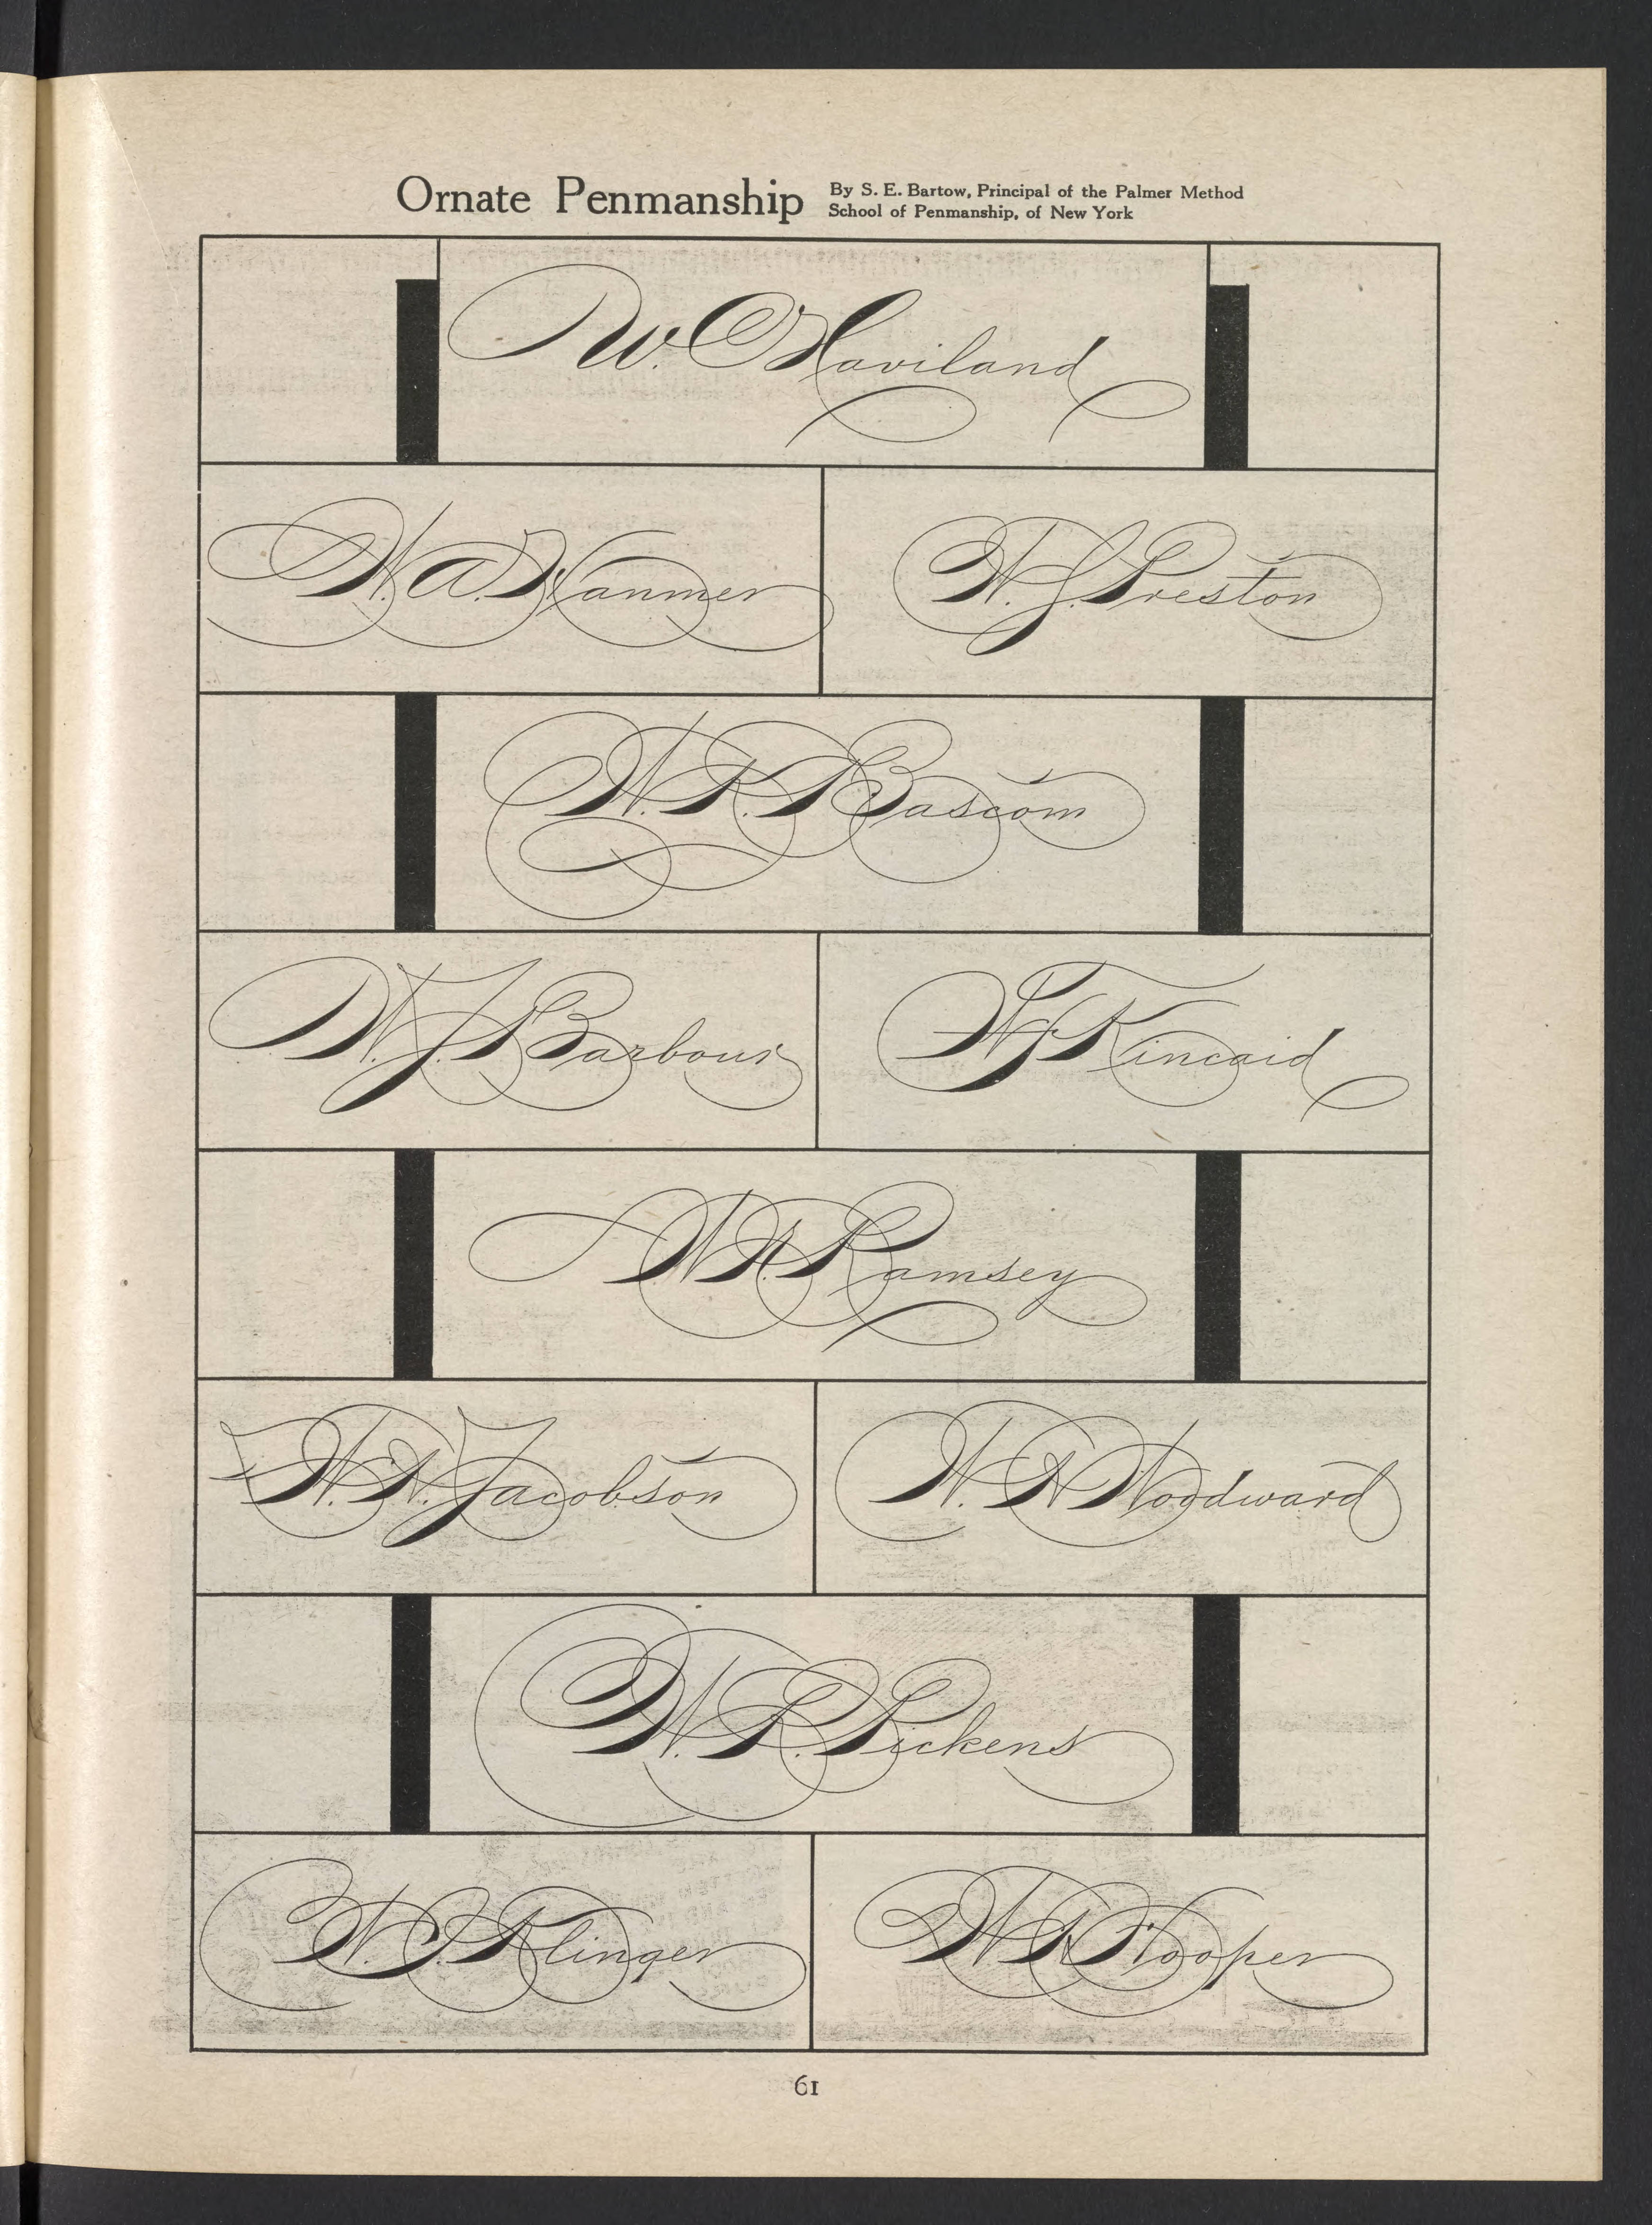 Ornate Penmanship
By S. E. Bartow, Principal of the Palmer Method
School of Penmanship, of New York
W. C Haviland
W. A. Wanmer
W. J. Preston
W. K. Bascom
W. J. Barbour
W F Kincaid
W H. Ramsey
W. N. Jacobson
W. H Woodward
W. R. Pickens
W. J. Klinger
W K Hooper
61